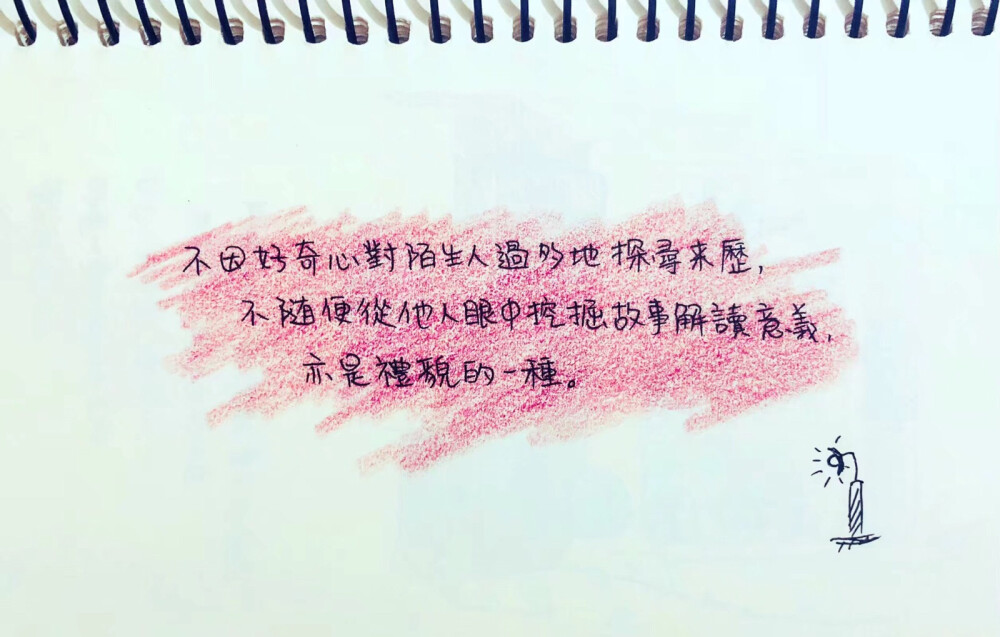 不因好奇心對陌生人過多地探尋来歷,
不随便從他人眼中挖掘故事解讀意義,
亦是禮貌的一種。